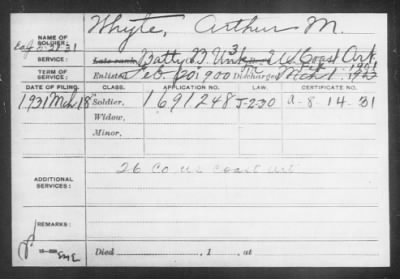 NAME OF SOLDIER: Whyte, Arthur M.
SERVICE: Late rank, Batty B. Unk U.S. Coast Art.
TERM OF SERVICE: Enlisted Feb 20 1900 Discharged
DATE OF FILING. CLASS. APPLICATION NO. LAW. CERTIFICATE NO.
1931 Mch 18 Soldier, 1691248 J-230 A-8-14-31
Widow,
Minor,
ADDITIONAL SERVICES: 26 Co US Coast Art
REMARKS:
Died , 1 , at